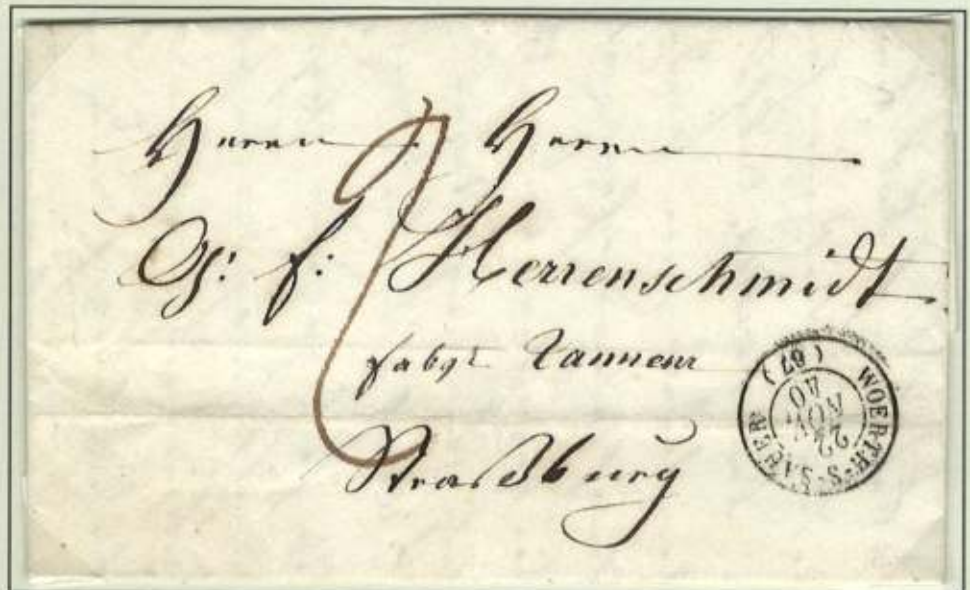 Herrn Herrn
G: f: Herrenschmidt
fabqt Tanneur
Straßburg
WOERTH-S-SAUER
22
NOV
40
(67)